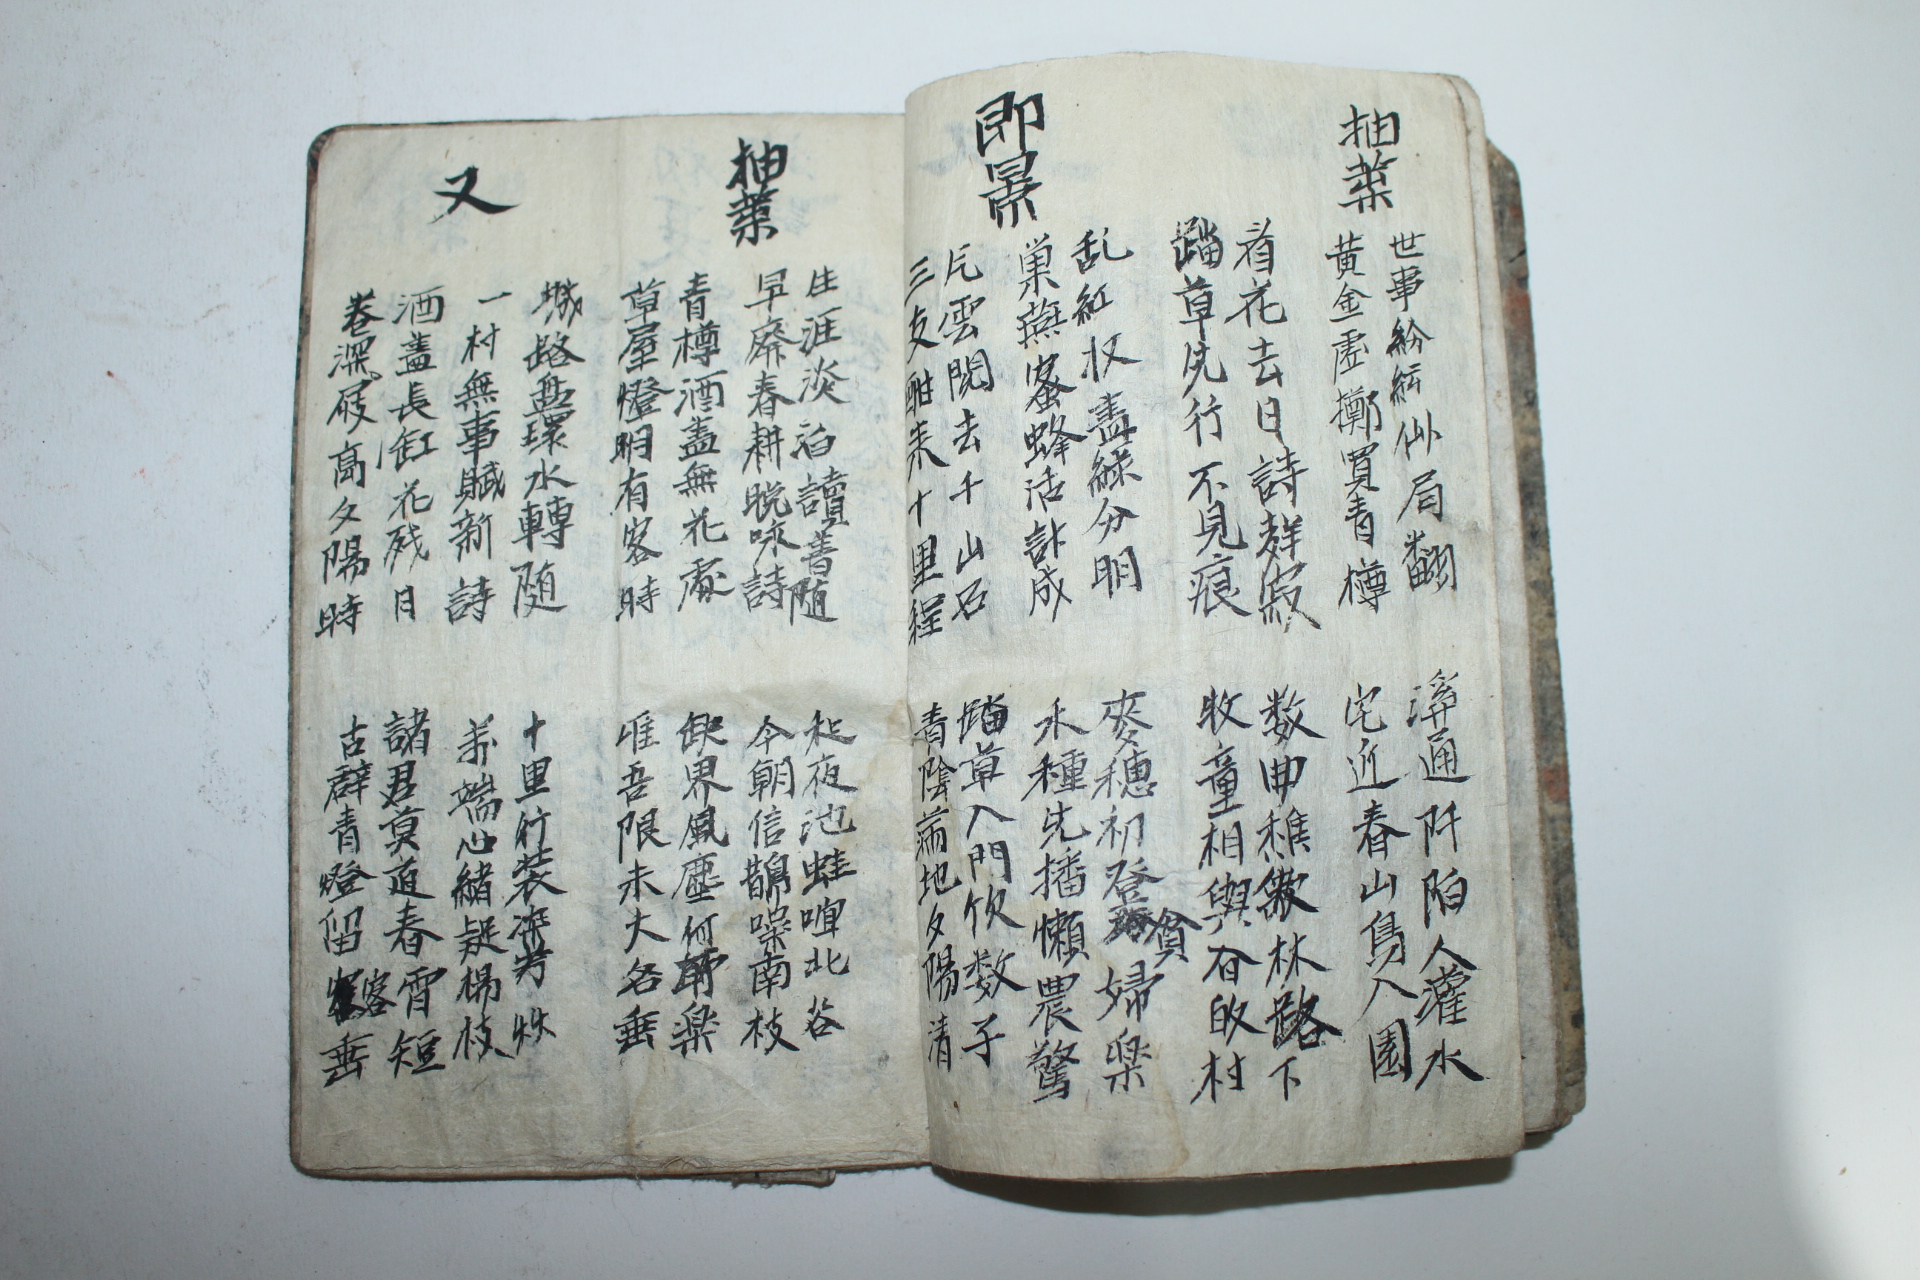 抽葉
世事紛紜仙局翻
溪通阡陌人灌水
黃金虛擲買青樽
宅近春山鳥入園
看花去日詩群寂
数曲樵歌林路下
蹈草先行不見痕
牧童相與杏的村
即景
乱紅收盡綠分明
麥穗初登貧婦楽
巢燕蜜蜂活計成
水種先播懶農驚
片雲閑去千山石
蹈草入門飲数子
三友酣来十里程
青陰滿地夕陽清
抽葉
生涯淡泊讀書随
昨夜池蛙喧北谷
早席春耕晚咏詩
今朝信鵲噪南枝
青樽酒盡無花處
缺界風塵何事楽
草屋燈明有客時
惟吾限未大名垂
又
城路盘環水轉随
十里行装
一村無事賦新詩
端心緒疑楊枝
酒盡長缸花残日
諸君莫道春宵短
巷深屐高夕陽時
古壁青燈留客垂